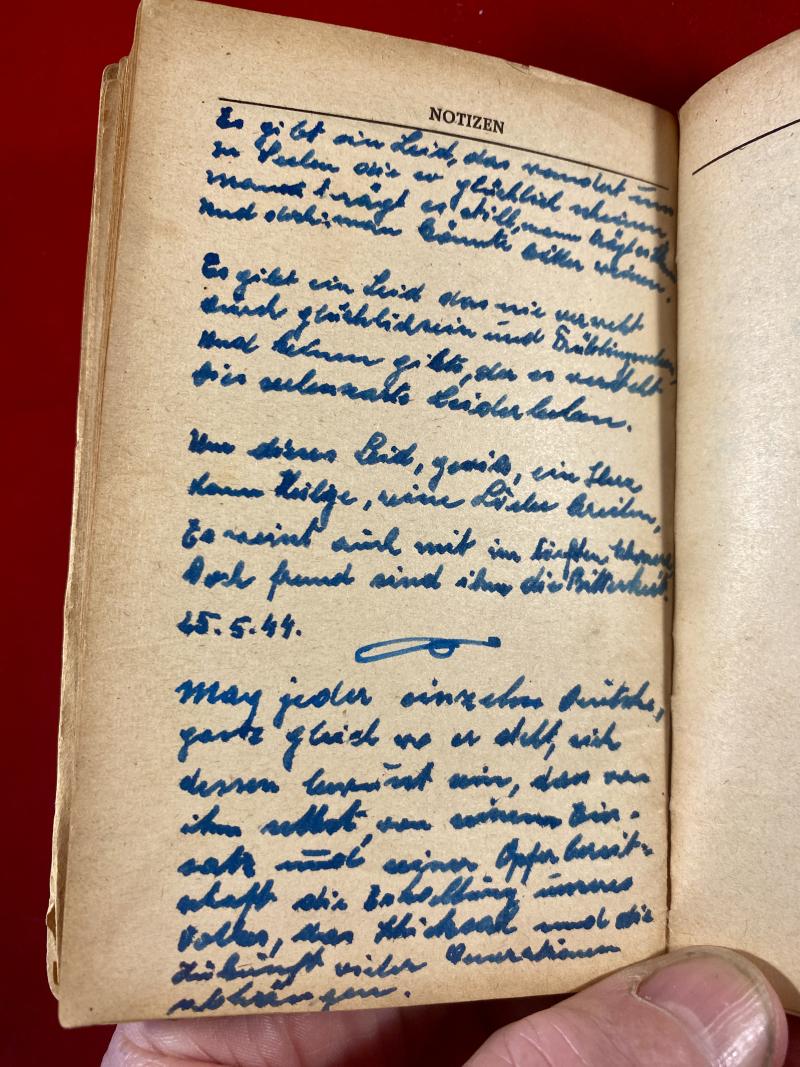 NOTIZEN
Es gibt ein Leid, das wandert um
in Seelen die so glücklich scheinen,
manch trägt es still, mann trägt es
und doch, man könnte bitter weinen.
Es gibt ein Leid das nie verweht
durch glücklichsein und Frühlingsweben,
und keinen gibts, der es versteht
dies seelenzarte Leiderleben.
Um dieses Leid, gewiß, ein Herz
kann Heilge, seine Lieder breiten,
Es weint auch mit im tiefsten Schmerz
Doch fremd sind ihm die Bitterkeit.
25.5.44.
Mag jeder einzelne Deutsche,
ganz gleich wo er steht, sich
dessen bewusst sein, das von
ihm selbst, von seinem Ein-
satz und seiner Opferbereit-
schaft die Erhaltung unseres
Volkes, das Schicksal und die
Zukunft vieler Generationen
abhängen.